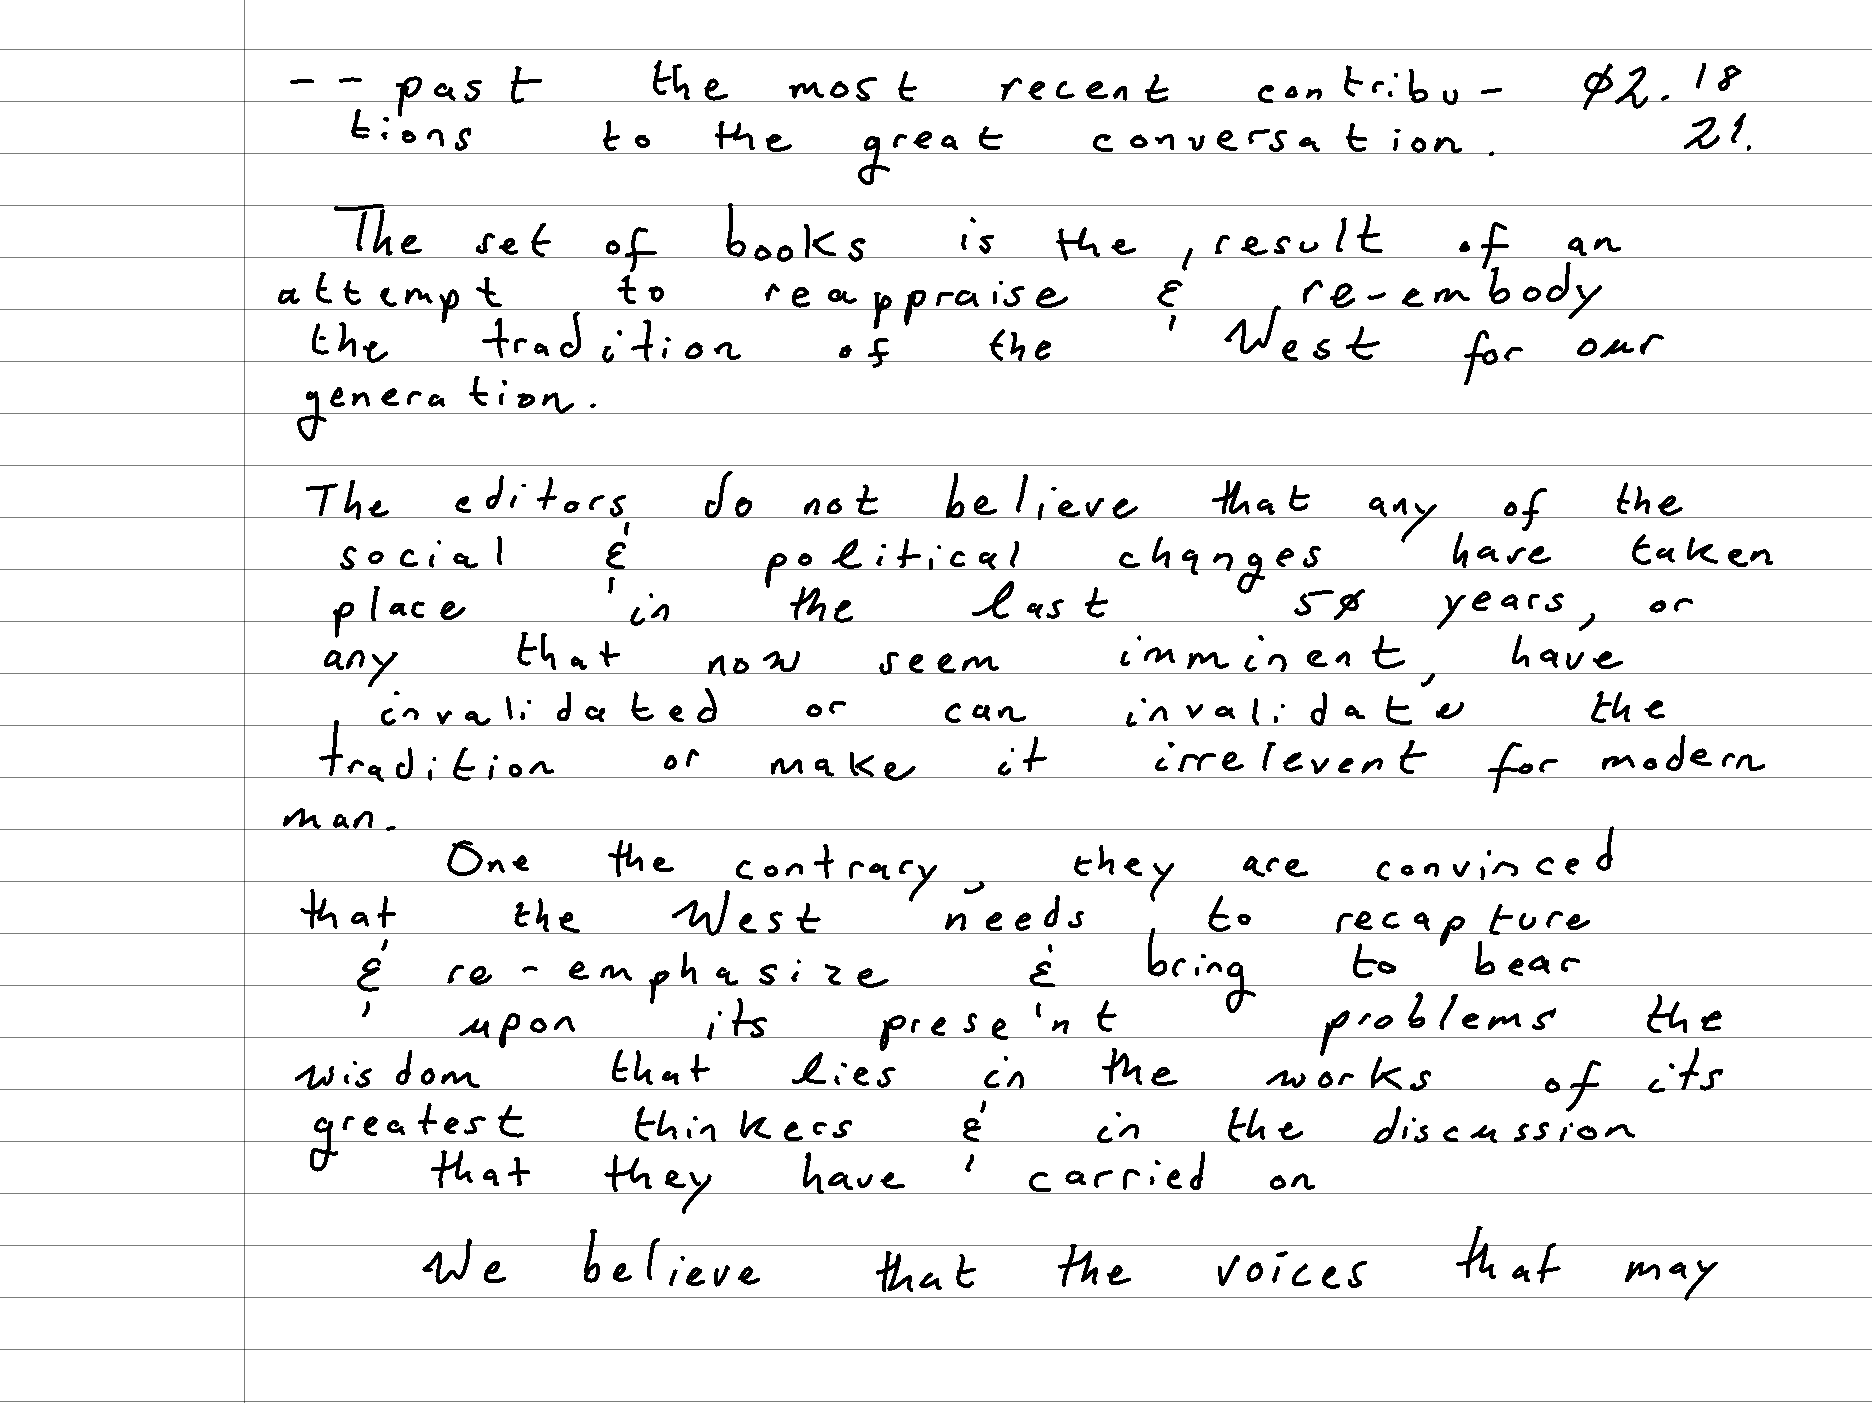 -- past the most recent contribu- ø2.18
tions to the great conversation. 21.
The set of books is the result of an
attempt to reappraise & re-embody
the tradition of the West for our
generation.
The editors do not believe that any of the
social & political changes have taken
place in the last 5ø years, or
any that now seem imminent, have
invalidated or can invalidate the
tradition or make it irrelevent for modern
man.
One the contrary, they are convinced
that the West needs to recapture
& re-emphasize & bring to bear
upon its present problems the
wisdom that lies in the works of its
greatest thinkers & in the discussion
that they have carried on
We believe that the voices that may